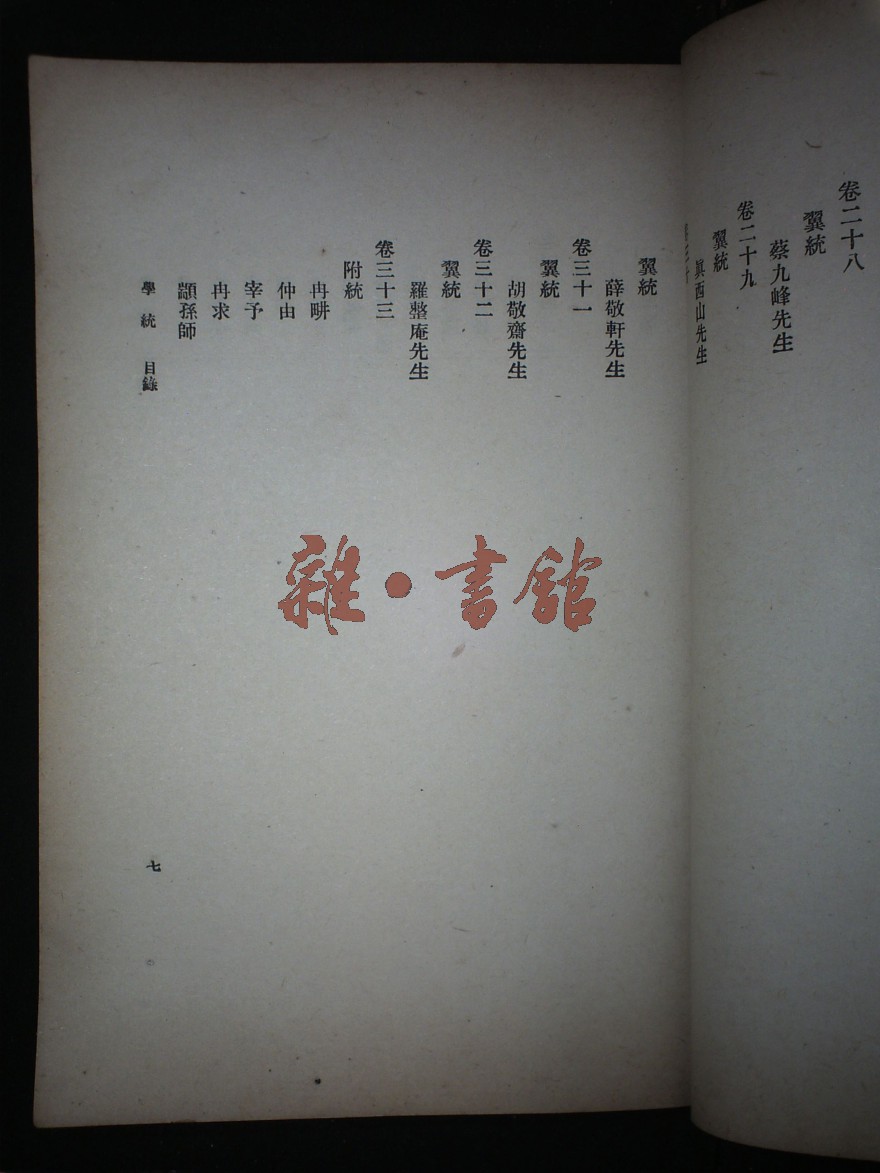 卷二十八
翼統
蔡九峰先生
卷二十九
翼統
眞西山先生
翼統
薛敬軒先生
卷三十一
翼統
胡敬齋先生
卷三十二
翼統
羅整庵先生
卷三十三
附統
冉畊
仲由
宰予
冉求
顓孫師
學統 目錄
七
雜·書館